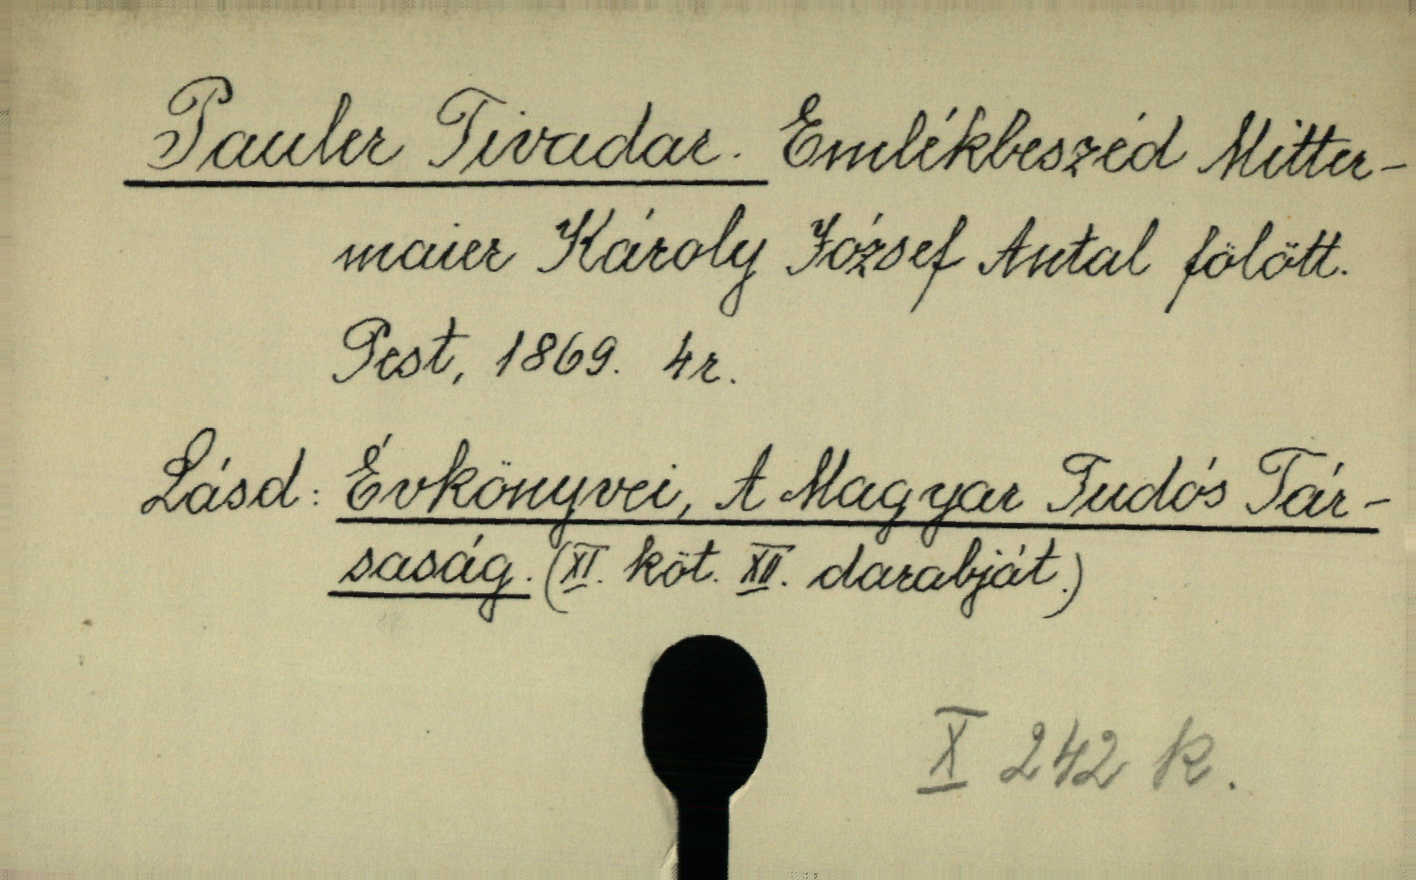 Pauler Tivadar. Emlékbeszéd Mitter-
maier Károly József Antal fölött.
Pest, 1869. 4r.
Lásd: Évkönyvei, A Magyar Tudós Tár-
saság. (XI. köt. XII. darabját.)
X 242 k.